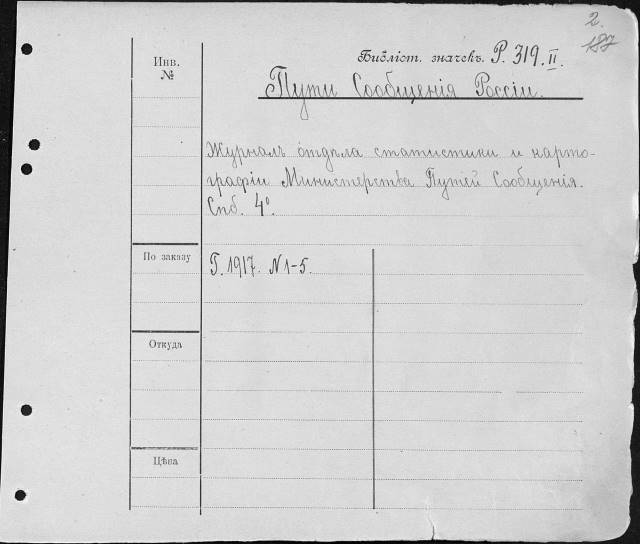 2.
187
Инв.
№
Библіот. значекъ. Р. 319. II.
Пути Сообщенія Россіи.
Журналъ отдѣла статистики и карто-
графіи Министерства Путей Сообщенія.
Спб. 4°.
По заказу
Г. 1917. N 1-5.
Откуда
Цѣна